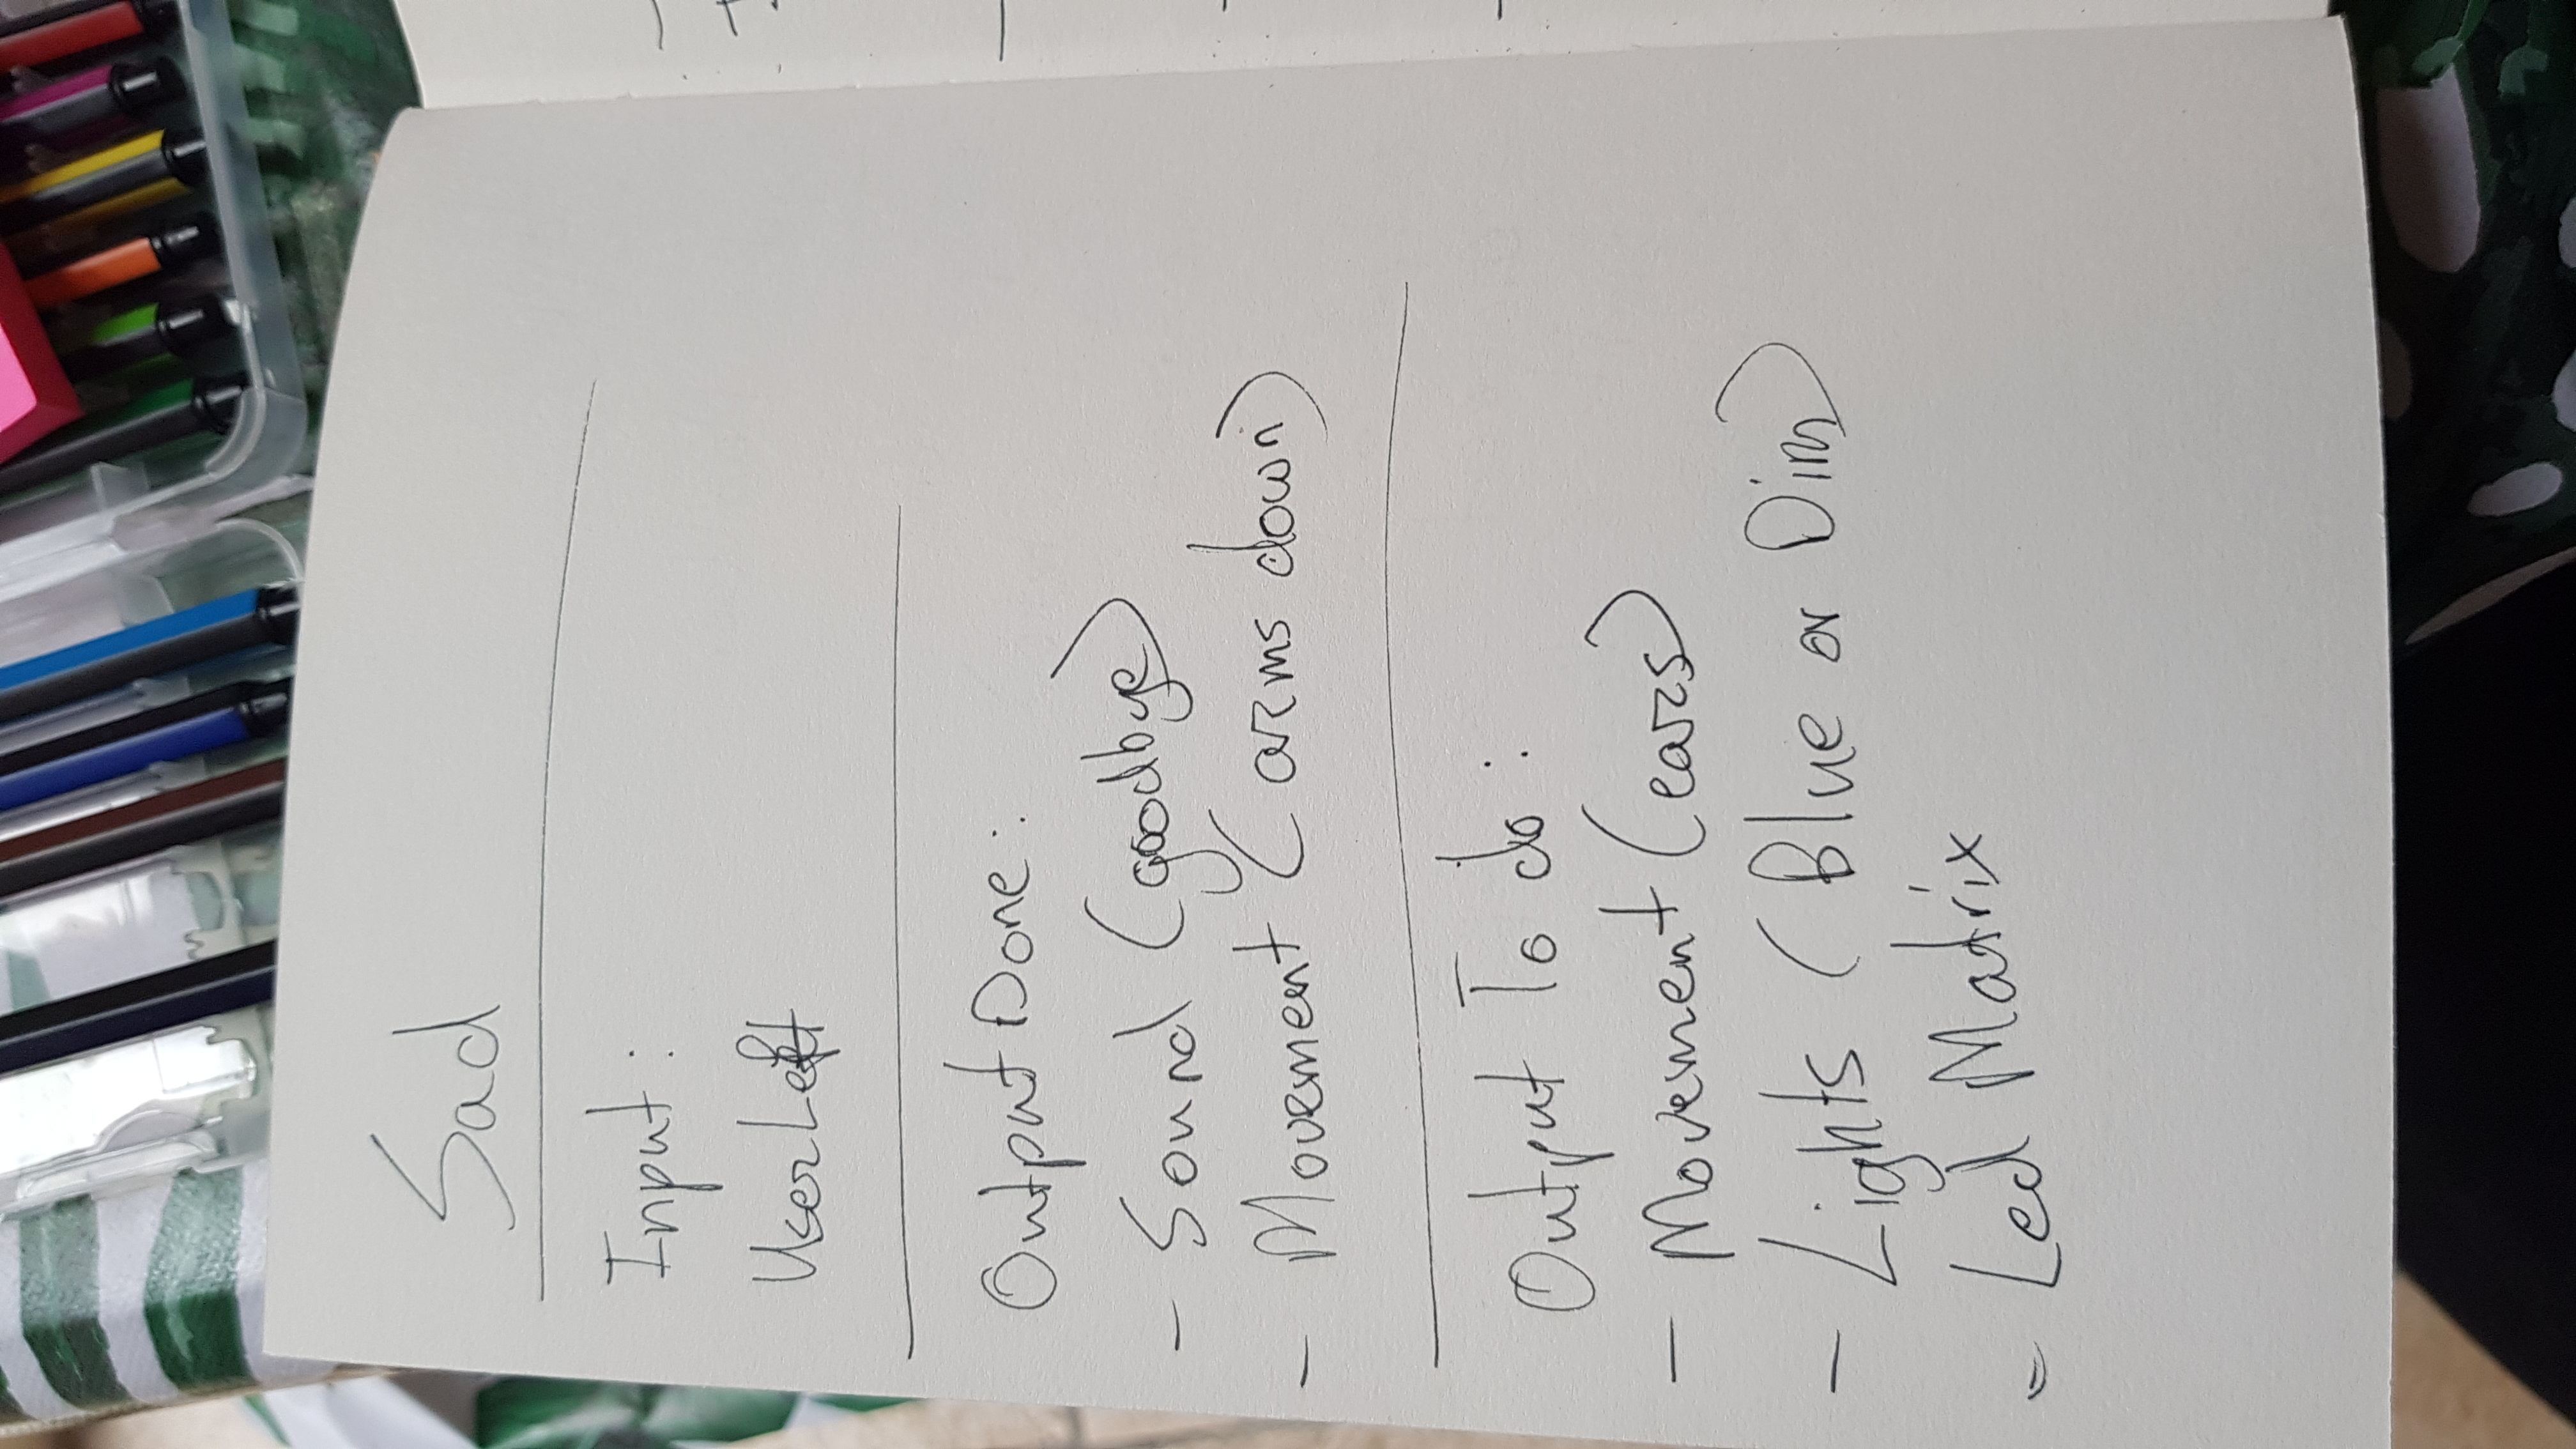 Sad
Input:
User Left
Output Done:
- Sound (goodbye)
- Movement (arms down)
Output To do:
- Movement (ears)
- Lights (Blue or Dim)
- Led Matrix